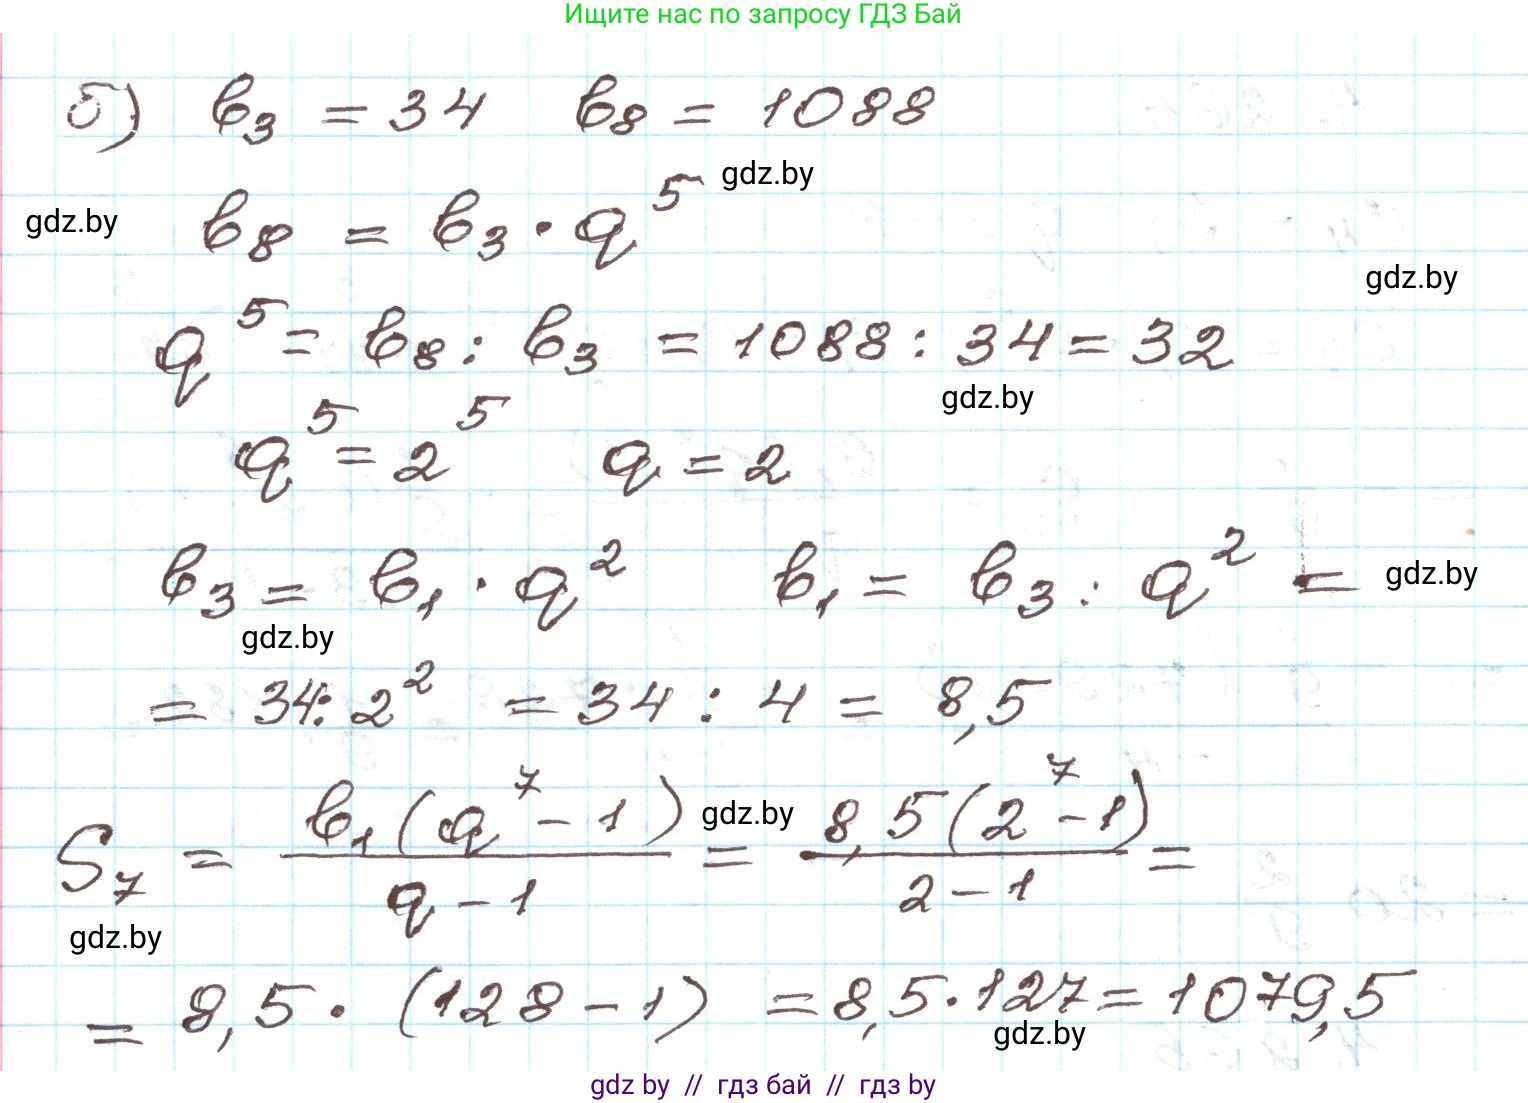 Ищите нас по запросу ГДЗ Бай
б) b₃ = 34 b₈ = 1088
gdz.by
gdz.by b₈ = b₃ · q⁵
gdz.by
q⁵ = b₈ : b₃ = 1088 : 34 = 32
gdz.by
q⁵ = 2⁵ q = 2
b₃ = b₁ · q² b₁ = b₃ : q² = gdz.by
gdz.by
= 34 : 2² = 34 : 4 = 8,5
S₇ = b₁(q⁷ - 1) / (q - 1) gdz.by = 8,5(2⁷ - 1) / (2 - 1) =
gdz.by
= 8,5 · (128 - 1) = 8,5 · 127 = 1079,5
gdz.by
gdz by // гдз бай // гдз by